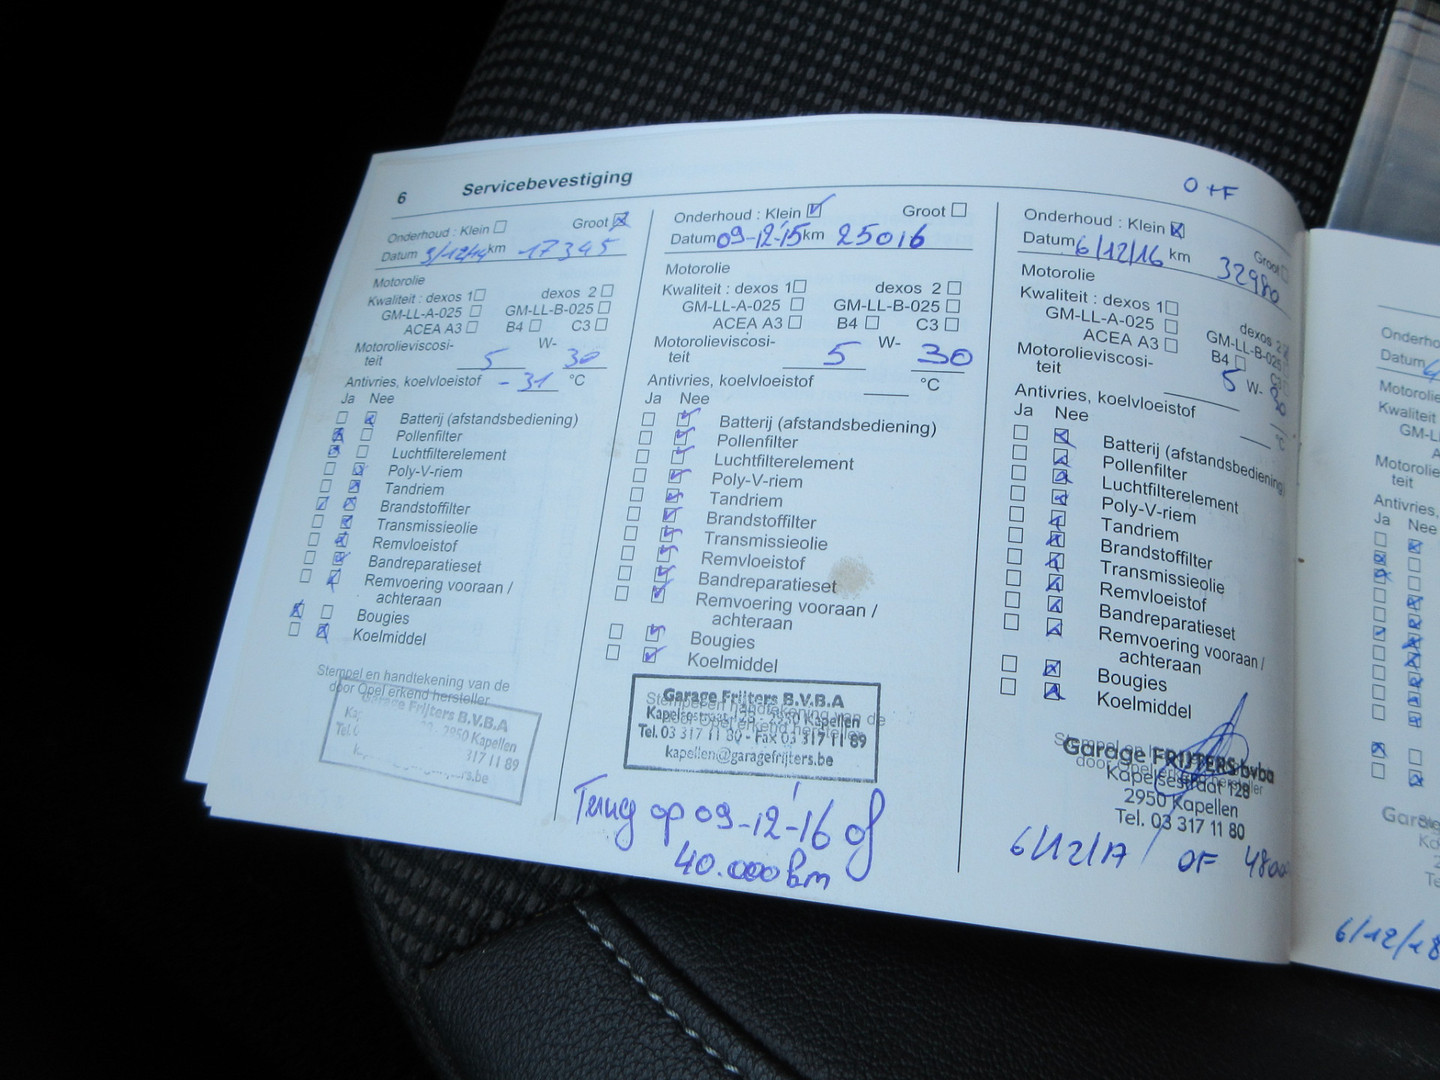 6 Servicebevestiging
Onderhoud : Klein Groot
Datum 9/12/14 km 17345
Motorolie
Kwaliteit : dexos 1 dexos 2
GM-LL-A-025 GM-LL-B-025
ACEA A3 B4 C3
Motorolieviscosi-
teit 5 W- 30
Antivries, koelvloeistof -31 °C
Ja Nee
Batterij (afstandsbediening)
Pollenfilter
Luchtfilterelement
Poly-V-riem
Tandriem
Brandstoffilter
Transmissieolie
Remvloeistof
Bandreparatieset
Remvoering vooraan /
achteraan
Bougies
Koelmiddel
Stempel en handtekening van de
door Opel erkend hersteller
Garage Frijters B.V.B.A
2950 Kapellen
Tel. 317 11 89
Onderhoud : Klein Groot
Datum 09-12-'15 km 25016
Motorolie
Kwaliteit : dexos 1 dexos 2
GM-LL-A-025 GM-LL-B-025
ACEA A3 B4 C3
Motorolieviscosi-
teit 5 W- 30
Antivries, koelvloeistof °C
Ja Nee
Batterij (afstandsbediening)
Pollenfilter
Luchtfilterelement
Poly-V-riem
Tandriem
Brandstoffilter
Transmissieolie
Remvloeistof
Bandreparatieset
Remvoering vooraan /
achteraan
Bougies
Koelmiddel
Stempel en handtekening van de
door Opel erkend hersteller
Garage Frijters B.V.B.A
Kapelsestraat 128 - 2950 Kapellen
Tel. 03 317 11 80 - Fax 03 317 11 89
kapellen@garagefrijters.be
Terug op 09-12-'16 of
40.000 km
O+F
Onderhoud : Klein Groot
Datum 6/12/16 km 32980
Motorolie
Kwaliteit : dexos 1 dexos 2
GM-LL-A-025 GM-LL-B-025
ACEA A3 B4 C3
Motorolieviscosi-
teit 5 W- 30
Antivries, koelvloeistof °C
Ja Nee
Batterij (afstandsbediening)
Pollenfilter
Luchtfilterelement
Poly-V-riem
Tandriem
Brandstoffilter
Transmissieolie
Remvloeistof
Bandreparatieset
Remvoering vooraan /
achteraan
Bougies
Koelmiddel
Stempel en
door Opel erkend hersteller
Garage FRIJTERS bvba
Kapelsestraat 128
2950 Kapellen
Tel. 03 317 11 80
6/12/17 / OF
Onderho
Datum
Motorolie
Kwaliteit
GM-L
Motorolie
teit
Antivries,
Ja Nee
6/12/18